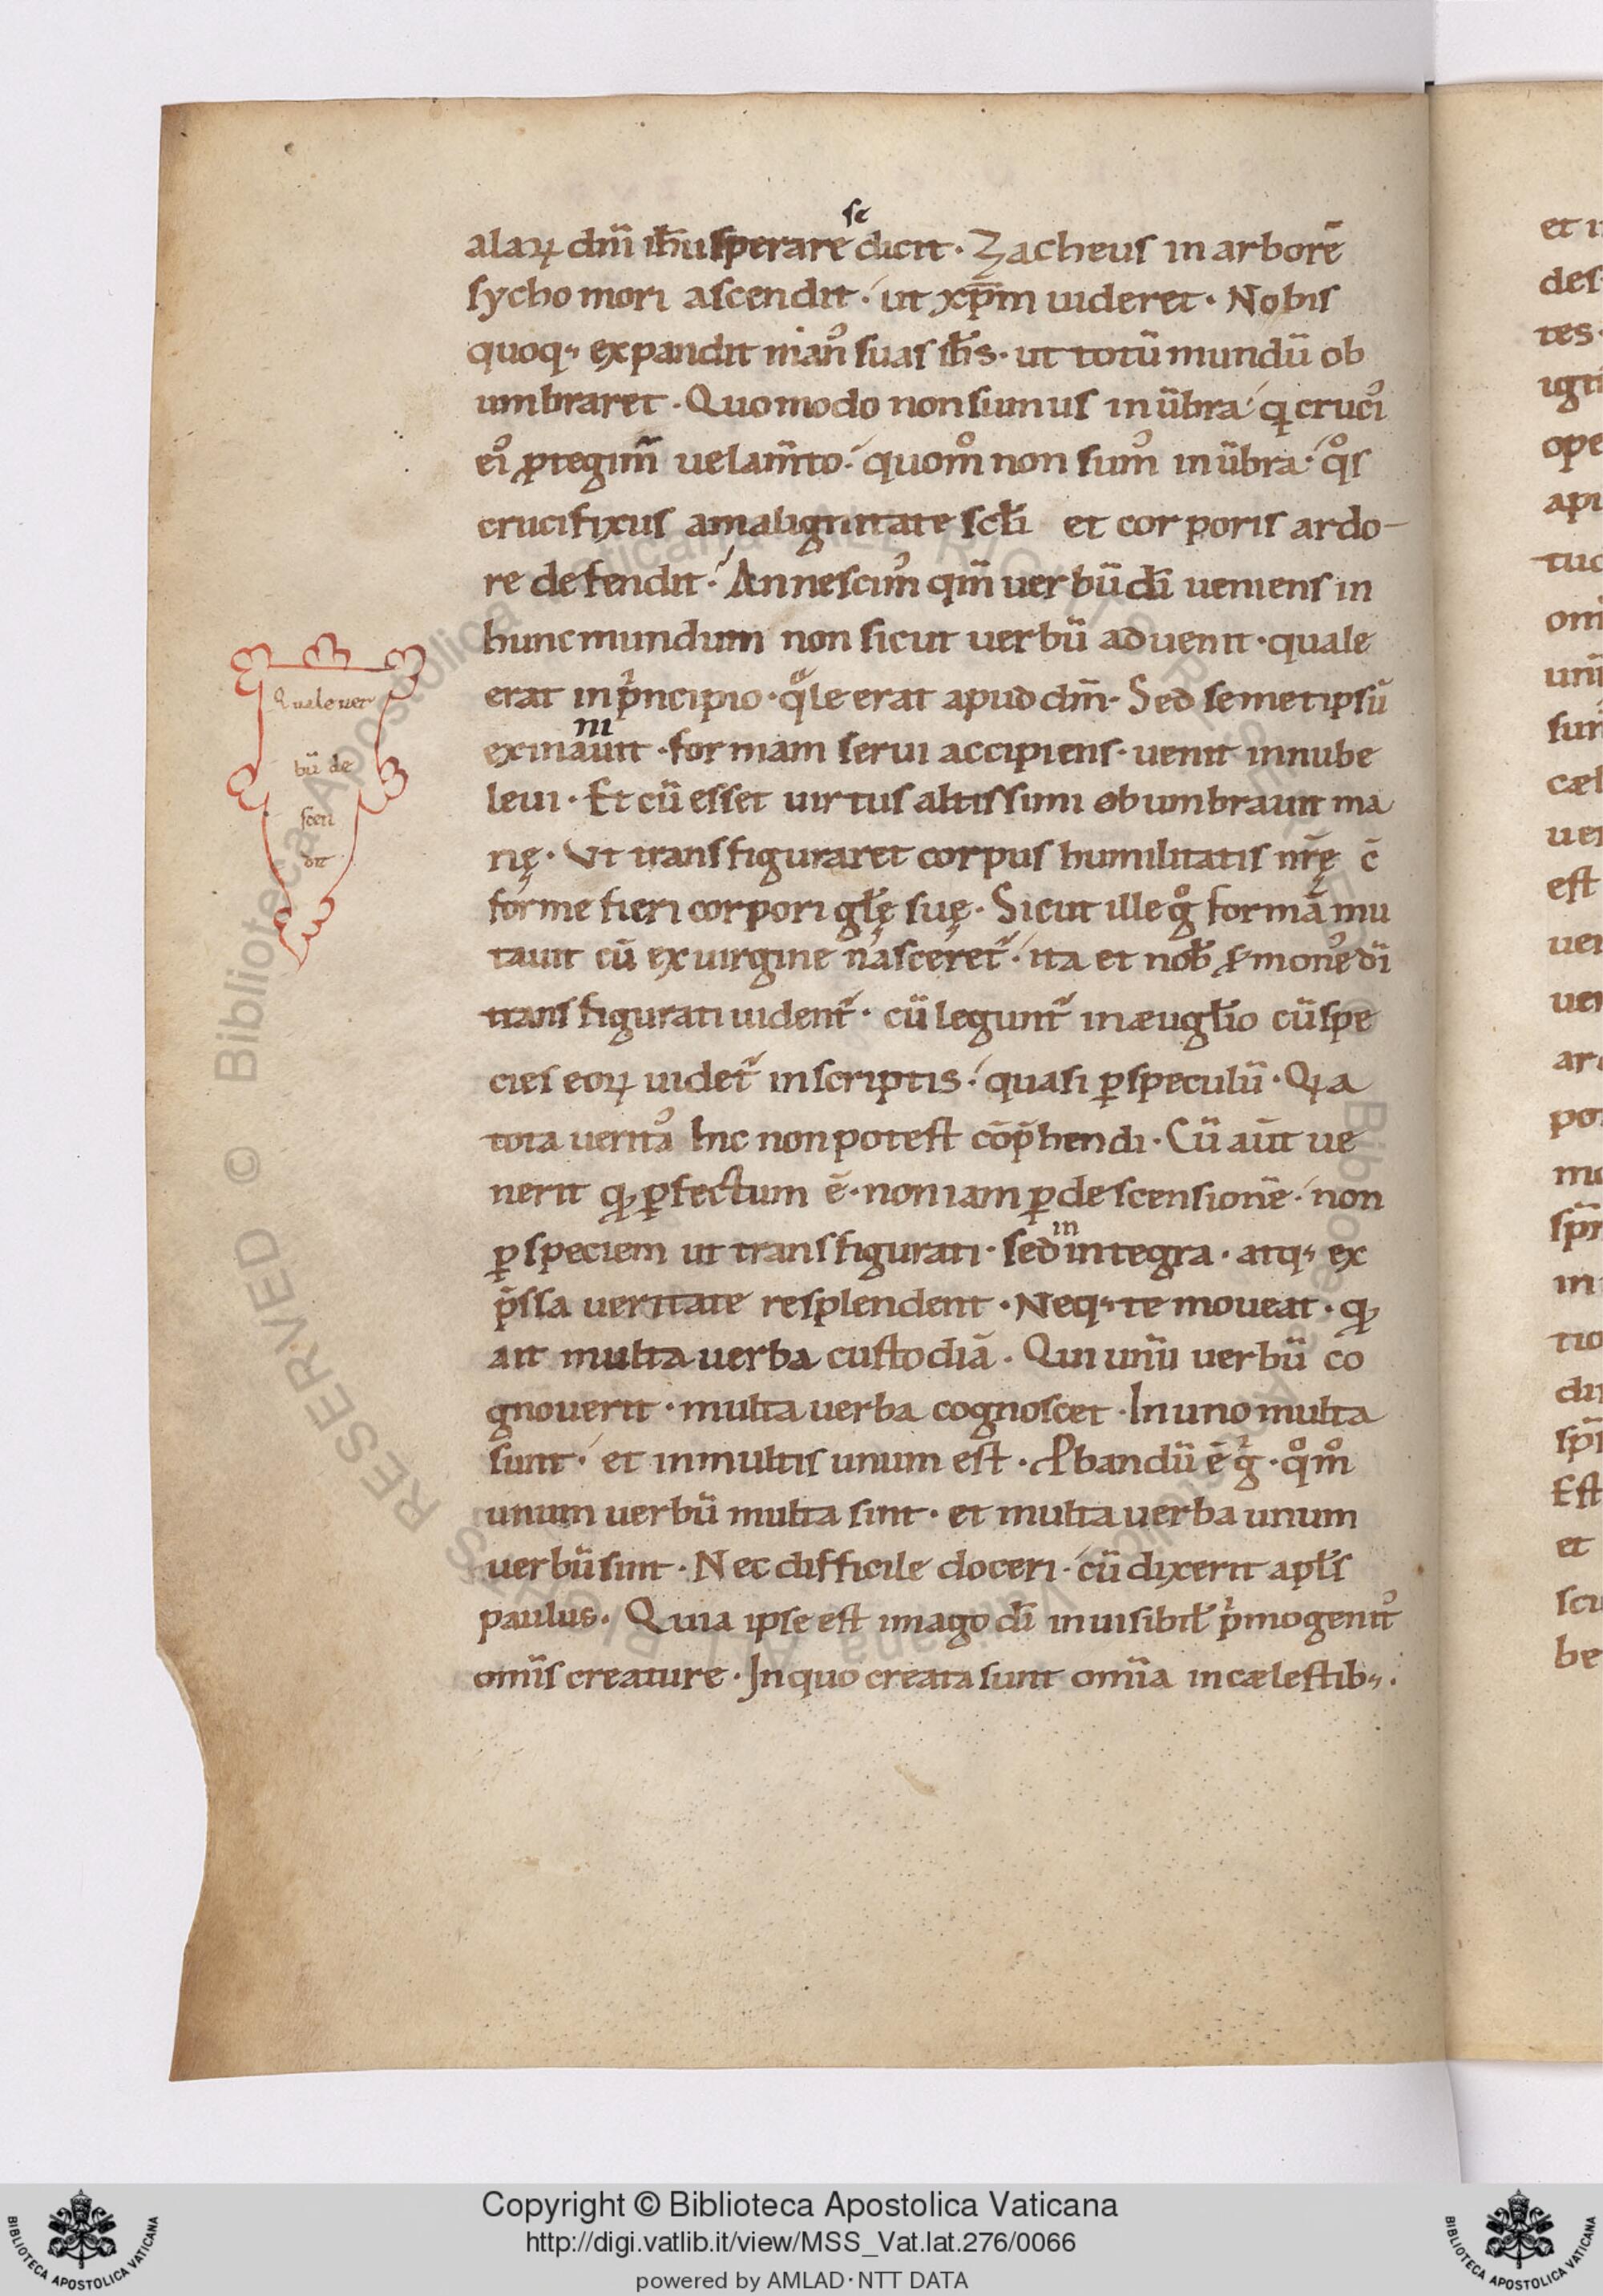 alaꝝ dnī ihū sperare se dicit · Zacheus in arborē
sychomori ascendit · ut xp̄m uideret · Nobis
quoq; expandit man᷒ suas ih̄s · ut totū mundū ob
umbraret · Quomodo non sumus in ūbra · q̇ cruci᷒
ei᷒ ꝓtegim̄ uelam̄to · quom̊ non sum᷒ in ūbra · q̊s
crucifixus a malignitate scł̄i et corporis ardo-
re defendit · An nescim᷒ qm̄ uerbū dī ueniens in
hunc mundum non sicut uerbū aduenit · quale
erat in pͥncipio · qͣle erat apud dm̄ · Sed semetipsū
exinaniuit · formam serui accipiens · uenit in nube
leui · Et cū esset uirtus altissimi obumbrauit ma
rię · Vt transfiguraret corpus humilitatis nr̄ę c̄
forme fieri corpori gł̄ę suę · Sicut ille g̊ formā mu
tauit cū ex uirgine nasceret᷑ · ita et nob̄
transfigurati uident᷑ · cū legunt᷑ in æugł̄io cū spe
cies eoꝝ uidet᷑ in scriptis · quasi ꝑ speculū · Qͥa
tota uerita᷒ hic non potest cōp̄hendi · Cū aūt ue
nerit qđ ꝑfectum ē · non iam ꝑ descensionē · non
ꝑ speciem ut transfigurati · sed in integra · atq; ex
p̄ssa ueritate resplendent · Neq; te moueat · qđ
ait multa uerba custodiā · Qui unū uerbū co
gnouerit · multa uerba cognoscet · In uno multa
sunt · et in multis unum est · Ꝓbandū ē gͥ · q̊m̊
unum uerbū multa sint · et multa uerba unum
uerbū sint · Nec difficile doceri · cū dixerit apł̄s
paulus · Quia ipse est imago dī inuisibił pͥmogenit᷒
omīs creature · In quo creata sunt omīa in cælestib; ·
Quale uer
bū de
scen
dit
et
des
tes ·
ugr
ope
apı
tuc
om
un
sur
cæl
uer
est
uer
uer
ar
por
mu
in
tio
du
Est
et
scu
be
Copyright © Biblioteca Apostolica Vaticana
http://digi.vatlib.it/view/MSS_Vat.lat.276/0066
powered by AMLAD·NTT DATA
BIBLIOTECA APOSTOLICA VATICANA
BIBLIOTECA APOSTOLICA VATICANA
© Biblioteca Apostolica Vaticana ALL RIGHTS RESERVED